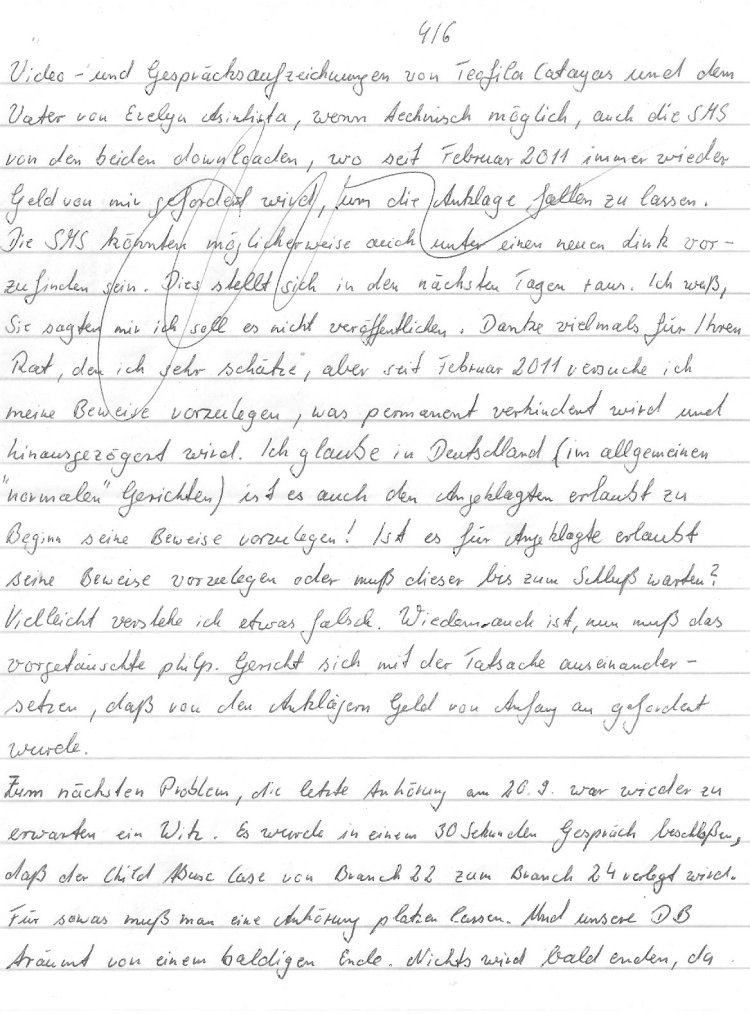 4/6
Video- und Gesprächsaufzeichnungen von Teofila Catayas und dem
Vater von Evelyn Asintista, wenn technisch möglich, auch die SMS
von den beiden downloaden, wo seit Februar 2011 immer wieder
Geld von mir gefordert wird, um die Anklage fallen zu lassen.
Die SMS könnten möglicherweise auch unter einen neuen Link vor-
zufinden sein. Dies stellt sich in den nächsten Tagen raus. Ich weiß,
Sie sagten mir ich soll es nicht veröffentlichen. Danke vielmals für Ihren
Rat, den ich sehr schätze, aber seit Februar 2011 versuche ich
meine Beweise vorzulegen, was permanent verhindert wird und
hinausgezögert wird. Ich glaube in Deutschland (im allgemeinen
"normalen" Gerichten) ist es auch den Angeklagten erlaubt zu
Beginn seine Beweise vorzulegen! Ist es für Angeklagte erlaubt
seine Beweise vorzulegen oder muß dieser bis zum Schluß warten?
Vielleicht verstehe ich etwas falsch. Wiedem auch ist, nun muß das
vorgetäuschte philp. Gericht sich mit der Tatsache auseinander-
setzen, daß von den Anklägern Geld von Anfang an gefordert
wurde.
Zum nächsten Problem, die letzte Anhörung am 20.9. war wieder zu
erwarten ein Witz. Es wurde in einem 30 Sekunden Gespräch beschloßen,
daß der Child Abuse Case von Branch 22 zum Branch 24 verlegt wird.
Für sowas muß man eine Anhörung platzen lassen. Und unsere DB
träumt von einem baldigen Ende. Nichts wird bald enden, da